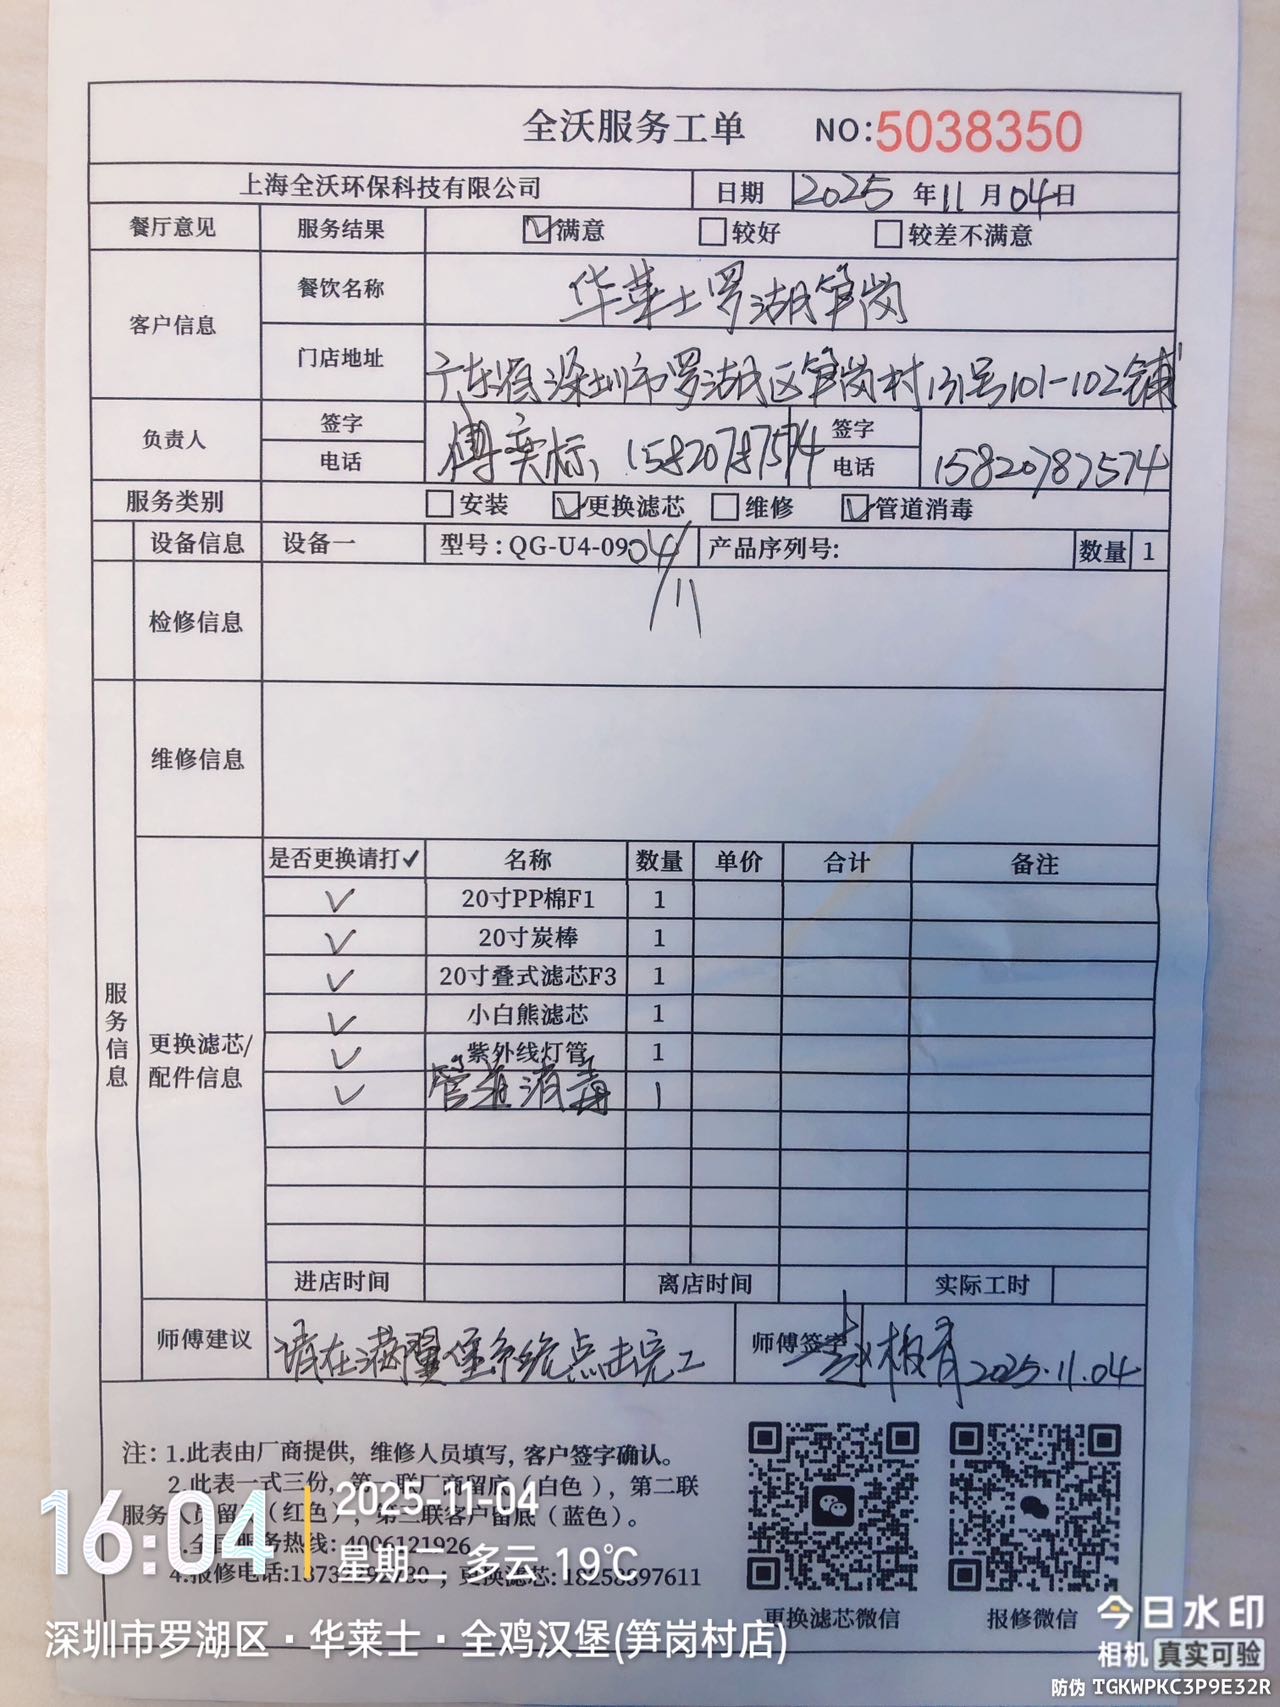 全沃服务工单 NO:5038350
上海全沃环保科技有限公司 日期 2025年11月04日
餐厅意见 服务结果 满意 较好 较差不满意
客户信息 餐饮名称 华莱士罗湖笋岗
门店地址 广东省深圳市罗湖区笋岗村131号101-102铺
负责人 签字 电话 15820787574 签字 电话 15820787574
服务类别 安装 更换滤芯 维修 管道消毒
设备信息 设备一 型号:QG-U4-09 04/11 产品序列号: 数量 1
检修信息
维修信息
服务信息
更换滤芯/配件信息
是否更换请打✓ 名称 数量 单价 合计 备注
✓ 20寸PP棉F1 1
✓ 20寸炭棒 1
✓ 20寸叠式滤芯F3 1
✓ 小白熊滤芯 1
✓ 紫外线灯管 1
✓ 管道消毒 1
进店时间 离店时间 实际工时
师傅建议 请在满翼堡系统点击完工 师傅签字 2025.11.04
注: 1.此表由厂商提供, 维修人员填写, 客户签字确认。
2.此表一式三份, 第一联厂商留底(白色), 第二联
服务人员留底(红色), 第三联客户留底(蓝色)。
全国服务热线: 4006121926
4.报修电话: 更换滤芯: 18258397611
更换滤芯微信 报修微信
16:04 2025-11-04
星期二 多云 19℃
深圳市罗湖区·华莱士·全鸡汉堡(笋岗村店)
今日水印
相机 真实可验
防伪 TGKWPKC3P9E32R